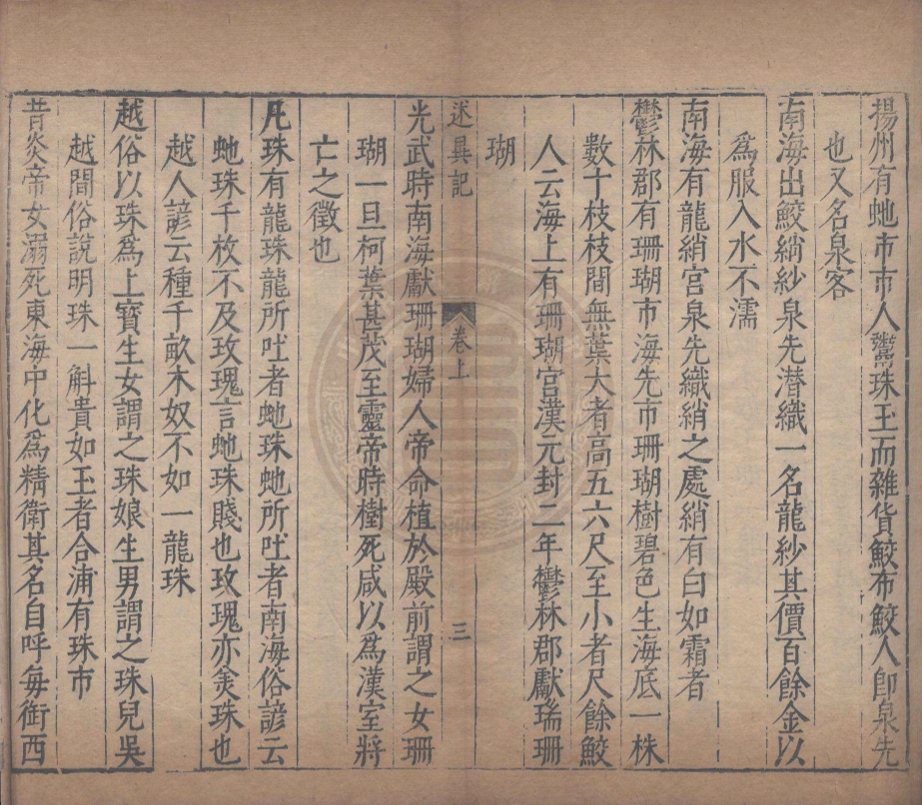 揚州有虵市市人鬻珠玉而雜貨鮫布鮫人卽泉先
也又名泉客
南海出鮫綃紗泉先潜織一名龍紗其價百餘金以
爲服入水不濡
南海有龍綃宮泉先織綃之處綃有白如霜者
鬱林郡有珊瑚市海先市珊瑚樹碧色生海底一株
數十枝枝間無葉大者高五六尺至小者尺餘鮫
人云海上有珊瑚宮漢元封二年鬱林郡獻瑞珊
瑚
述異記 卷上 三
光武時南海獻珊瑚婦人帝命植於殿前謂之女珊
瑚一旦柯葉甚茂至靈帝時樹死咸以爲漢室將
亡之徵也
凡珠有龍珠龍所吐者虵珠虵所吐者南海俗諺云
虵珠千枚不及玫瑰言虵珠賤也玫瑰亦美珠也
越人諺云種千畝木奴不如一龍珠
越俗以珠爲上寶生女謂之珠娘生男謂之珠兒吳
越間俗說明珠一斛貴如王者合浦有珠市
昔炎帝女溺死東海中化爲精衛其名自呼每銜西